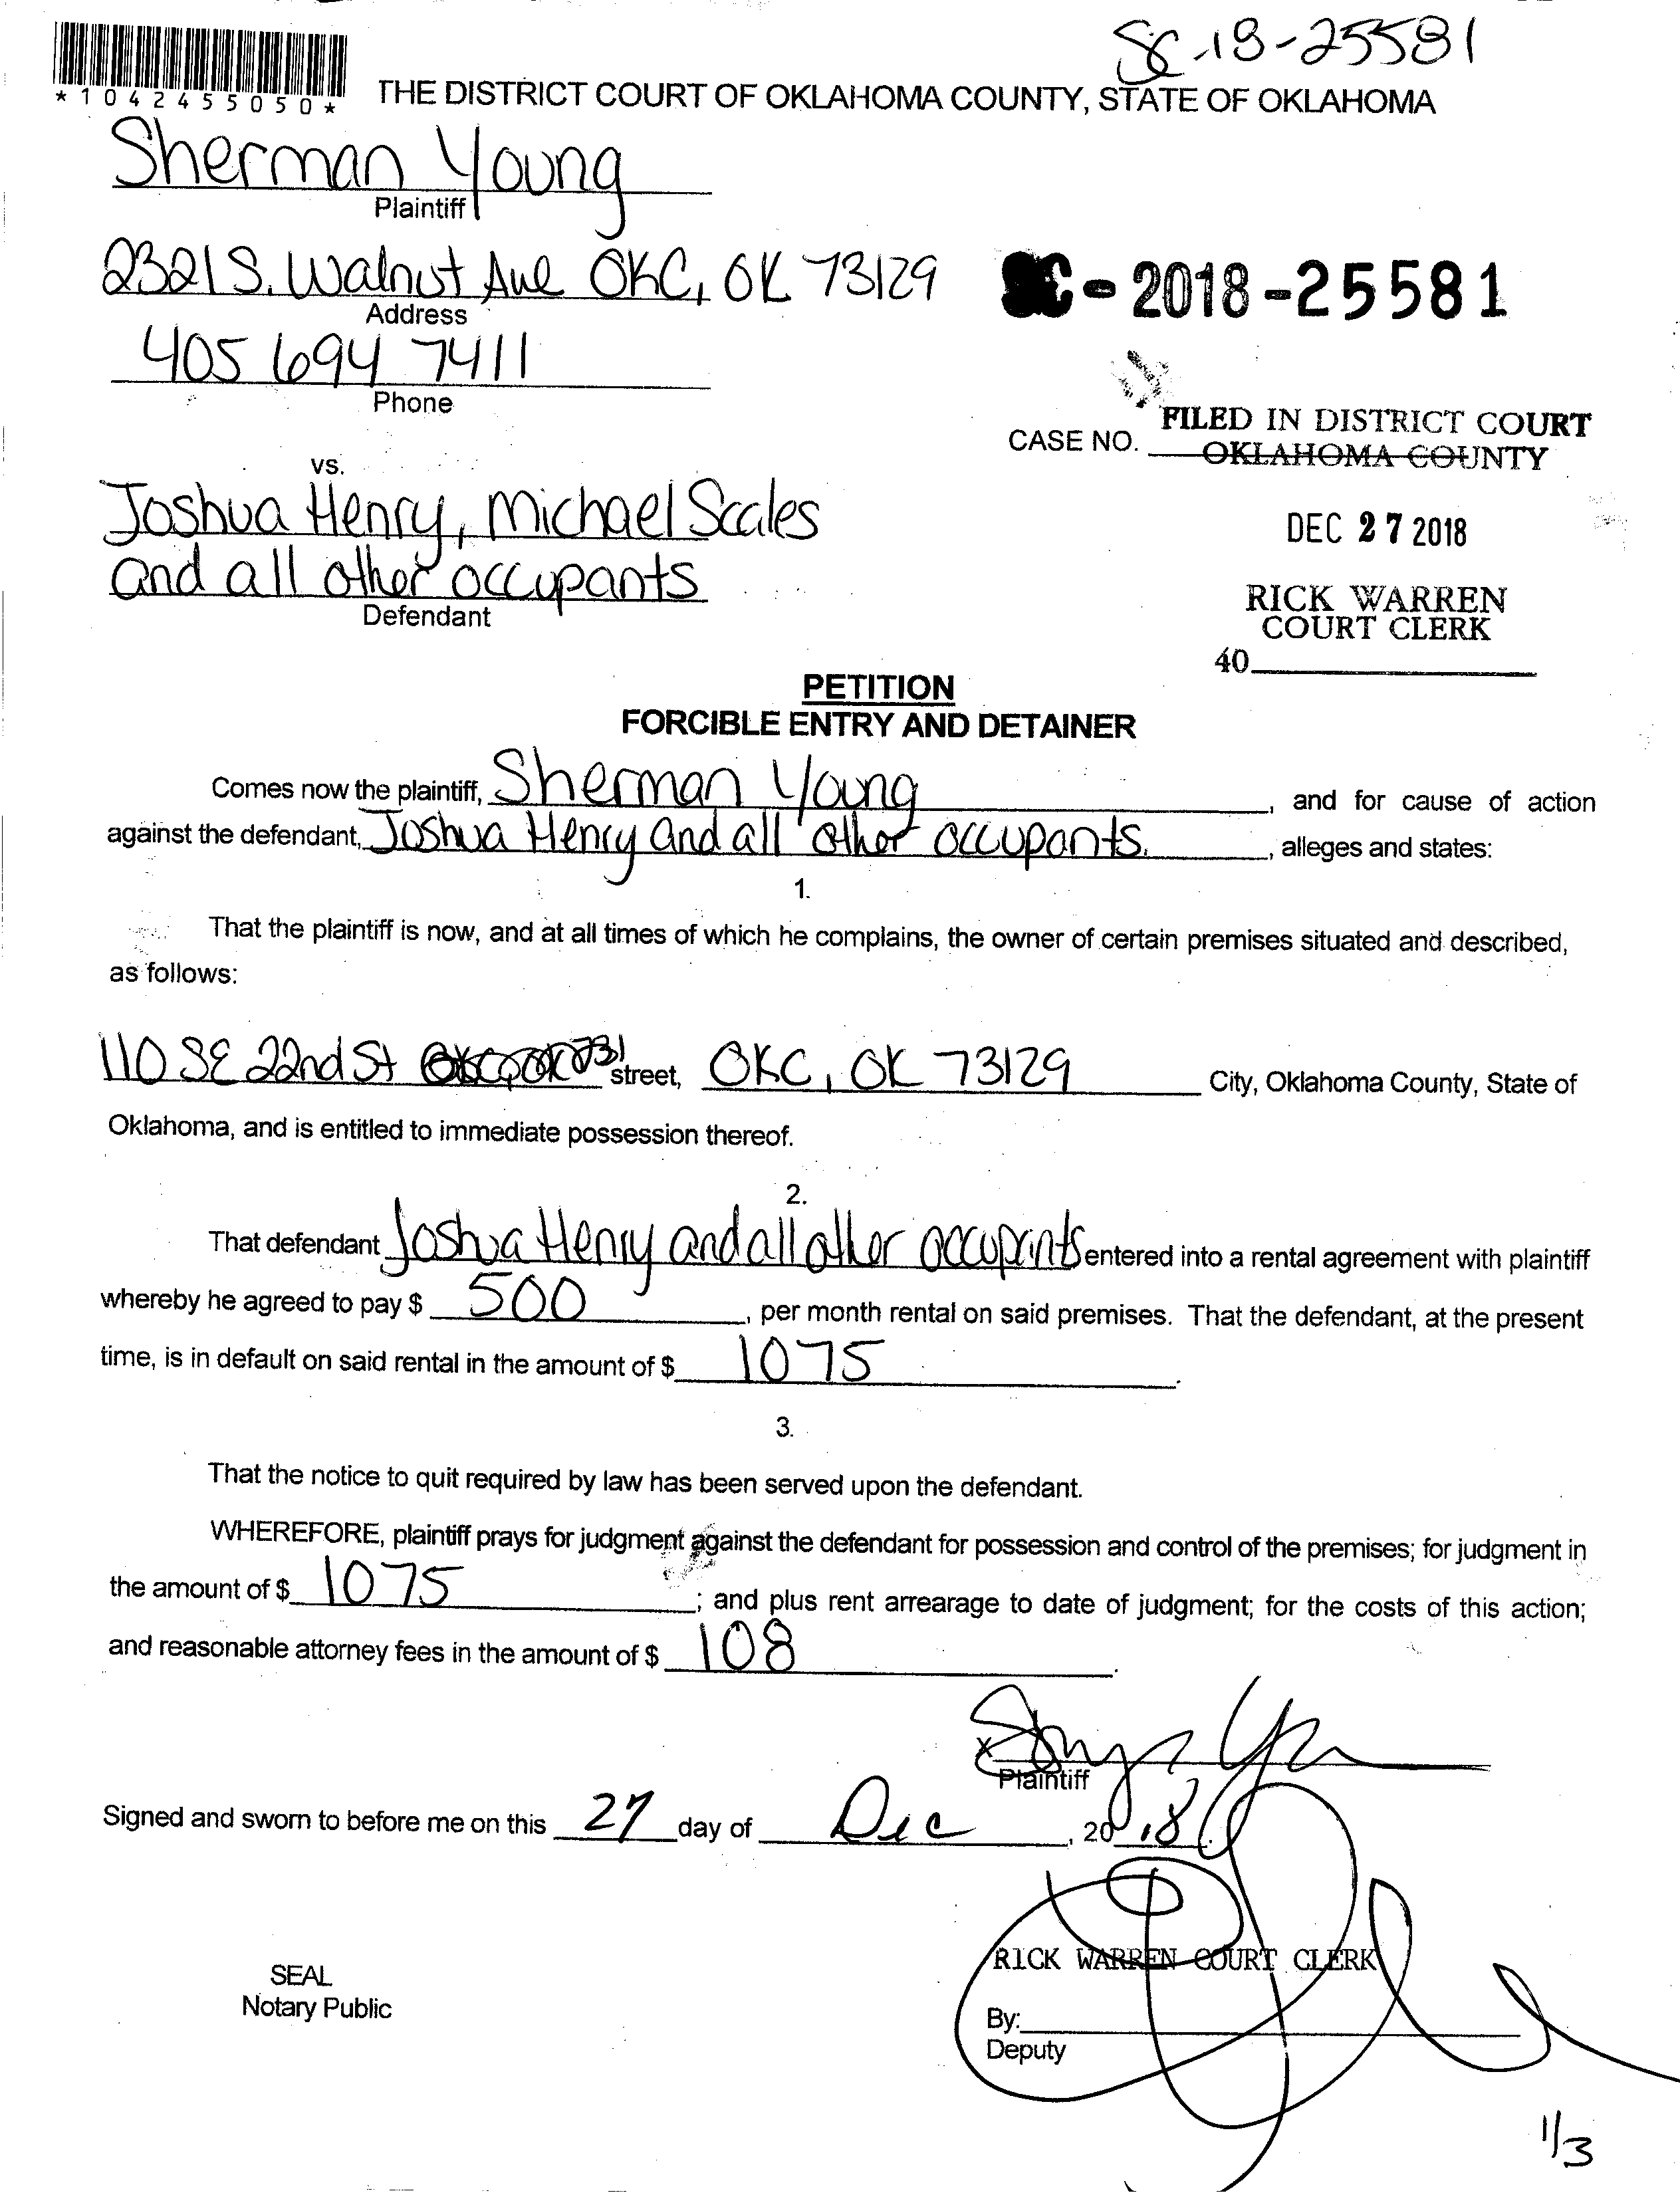 SC-18-25581
*1042455050*
THE DISTRICT COURT OF OKLAHOMA COUNTY, STATE OF OKLAHOMA
Sherman Young
Plaintiff
2321 S. Walnut Ave OKC, OK 73129
Address
SC-2018-25581
405 694 7411
Phone
CASE NO. FILED IN DISTRICT COURT
OKLAHOMA COUNTY
vs.
Joshua Henry, Michael Scales
and all other occupants
Defendant
DEC 27 2018
RICK WARREN
COURT CLERK
40
PETITION
FORCIBLE ENTRY AND DETAINER
Comes now the plaintiff, Sherman Young, and for cause of action
against the defendant, Joshua Henry and all other occupants., alleges and states:
1.
That the plaintiff is now, and at all times of which he complains, the owner of certain premises situated and described,
as follows:
110 SE 22nd St street, OKC, OK 73129 City, Oklahoma County, State of
Oklahoma, and is entitled to immediate possession thereof.
2.
That defendant Joshua Henry and all other occupants entered into a rental agreement with plaintiff
whereby he agreed to pay $ 500, per month rental on said premises. That the defendant, at the present
time, is in default on said rental in the amount of $ 1075.
3.
That the notice to quit required by law has been served upon the defendant.
WHEREFORE, plaintiff prays for judgment against the defendant for possession and control of the premises; for judgment in
the amount of $ 1075; and plus rent arrearage to date of judgment; for the costs of this action;
and reasonable attorney fees in the amount of $ 108.
X
Plaintiff
Signed and sworn to before me on this 27 day of Dec, 2018.
RICK WARREN COURT CLERK
SEAL
Notary Public
By:
Deputy
1/3